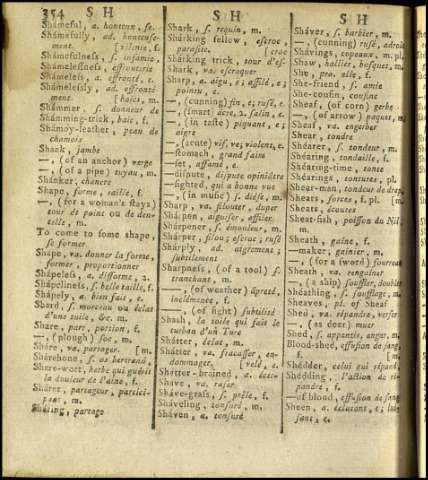 354 S H
Shámeful, a. honteux, se.
Shámefully, ad. honteuse-
ment. [vilinie, f.
Shámefulness, s. infamie,
Shámelessness, effronterie
Shámeless, a. effronté, e.
Shámelessly, ad. effronté-
ment. [bais, m.
Shámmer, s. donneur de
Shámming-trick, baie, f.
Shámoy-leather, peau de
chamois
Shank, jambe
—, (of an anchor) verge
—, (of a pipe) tuyau, m.
Shánker, chancre
Shape, forme, taille, f.
—, (for a woman's stays)
tour de point ou de den-
telle, m.
To come to some shape,
se former
Shape, va. donner la forme,
former, proportionner
Shápeless, a. difforme, 2.
Shápeliness, s. belle taille, f.
Shápely, a. bien fait, e.
Shard, s. morceau ou éclat
d'une tuile, &c. m.
Share, part, portion, f.
—, (plough) soc, m.
Sháre, va. partager. [m.
Shárebone, s. os bertrand,
Sháre-wort, herbe qui guérit
la douleur de l'aine, f.
Shárer, partageur, partici-
pant, m.
Sháring, partage
S H
Shark, s. requin, m.
Shárking fellow, escroc,
parasite. [croc
Shárking trick, tour d'es-
Shark, va. escroquer
Sharp, a. aigu, ë; affilé, e;
pointu, e.
—, (cunning) fin, e; rusé, e.
—, (smart) âcre, 2. salin, e.
—, (in taste) piquant, e;
aigre
—, (acute) vif, ve; violent, e.
—stomach, grand faim
—set, affamé, e.
—dispute, dispute opiniâtre
—sighted, qui a bonne vue
—, (in music) s. dièse, m.
Sharp, va. filouter, duper
Shárpen, aiguiser, affiler
Shárpener, s. émouleur, m.
Shárper, filou; escroc; rusé
Shárply, ad. aigrement;
subtilement
Sharpness, (of a tool) s.
tranchant, m.
—, (of weather) âpreté,
inclémence, f.
—, (of sight) subtilité
Shash, la toile qui fait le
turban d'un Turc
Shátter, éclat, m.
Shátter, va. fracasser, en-
dommager. [velé, e.
Shátter-brained, a. écer-
Shave, va. raser
Sháve-grass, s. prêle, f.
Sháveling, tonsuré, m.
Sháven, a. tonsuré
S H
Sháver, s. barbier, m.
—, (cunning) rusé, adroit
Shávings, copeaux, m. pl.
Shaw, hallier, bosquet, m.
She, pro. elle, f.
She-friend, s. amie
She-cousin, cousine
Sheaf, (of corn) gerbe
—, (of arrow) paquet, m.
Sheaf, va. engerber
Shear, tondre
Shéarer, s. tondeur, m.
Shéaring, tondaille, f.
Shéaring-time, tonte
Shéarings, tontures, pl.
Shear-man, tondeur de drap,
Shears, forces, f. pl. [m.
Sheats, écoutes
Sheat-fish, poisson du Nil,
m.
Sheath, gaine, f.
—maker, gainier, m.
—, (for a sword) fourreau
Sheath, va. rengainer
—, (a ship) souffler, doubler
Shéathing, s. soufflage, m.
Sheaves, pl. of Sheaf
Shed, va. répandre, verser
—, (as deer) muer
Shed, s. appentis, angar, m.
Blood-shed, effusion de sang,
f. [m.
Shédder, celui qui répand,
Shédding, l'action de ré-
pandre, f.
—of blood, effusion de sang
Sheen, a. éclatant, e; lui-
sant, e.